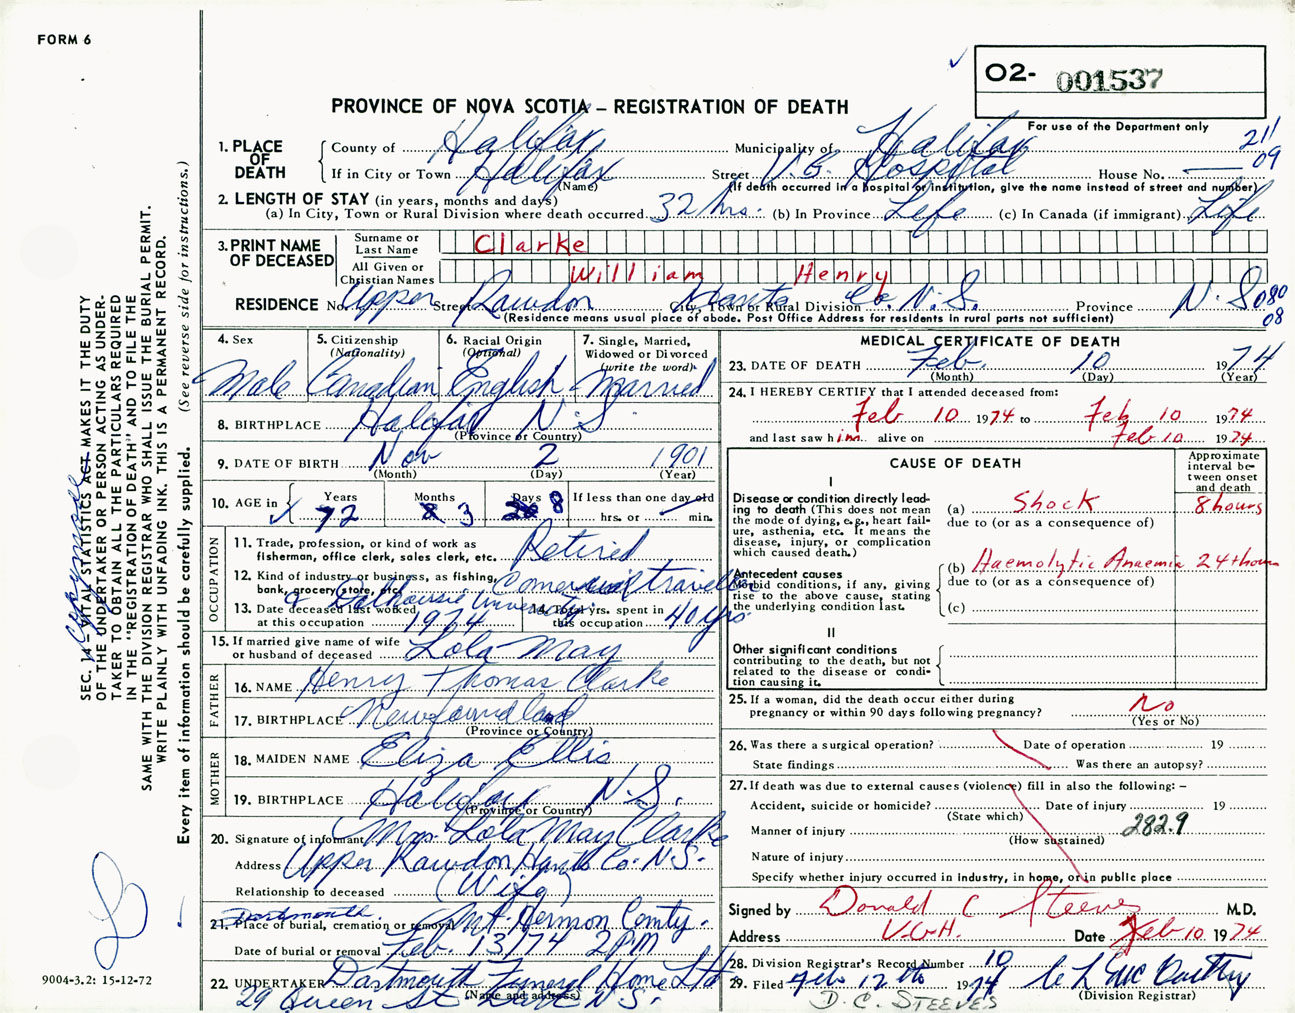 FORM 6
02- 001537
PROVINCE OF NOVA SCOTIA – REGISTRATION OF DEATH
For use of the Department only
211
09
1. PLACE OF DEATH
County of Halifax Municipality of Halifax
If in City or Town Halifax Street V.G. Hospital House No. —
(Name) (If death occurred in a hospital or institution, give the name instead of street and number)
2. LENGTH OF STAY (in years, months and days)
(a) In City, Town or Rural Division where death occurred 32 hrs. (b) In Province Life (c) In Canada (if immigrant) Life
3. PRINT NAME OF DECEASED
Surname or Last Name Clarke
All Given or Christian Names William Henry
RESIDENCE No. Upper Street Rawdon City, Town or Rural Division Hants Co. N.S. Province N.S. 080
08
(Residence means usual place of abode. Post Office Address for residents in rural parts not sufficient)
4. Sex
Male
5. Citizenship (Nationality)
Canadian
6. Racial Origin (Optional)
English
7. Single, Married, Widowed or Divorced (write the word)
Married
8. BIRTHPLACE Halifax N.S
(Province or Country)
9. DATE OF BIRTH Nov 2 1901
(Month) (Day) (Year)
10. AGE in Years Months Days If less than one day old
72 3 8 hrs. or min.
OCCUPATION
11. Trade, profession, or kind of work as fisherman, office clerk, sales clerk, etc. Retired
12. Kind of industry or business, as fishing, bank, grocery store, etc. Comercial traveller
& Dalhousie University
13. Date deceased last worked at this occupation 1974
14. Total yrs. spent in this occupation 40 yrs.
15. If married give name of wife or husband of deceased Lola May
FATHER
16. NAME Henry Thomas Clarke
17. BIRTHPLACE Newfoundland
(Province or Country)
MOTHER
18. MAIDEN NAME Eliza Ellis
19. BIRTHPLACE Halifax N.S.
(Province or Country)
20. Signature of informant Mrs. Lola May Clarke
Address Upper Rawdon Hants Co. N.S.
Relationship to deceased (Wife)
Dartmouth
21. Place of burial, cremation or removal Mt. Hermon Comty.
Date of burial or removal Feb. 13/74 2 PM
22. UNDERTAKER Dartmouth Funeral Home Ltd
29 Queen St. Dart. N.S.
(Name and address)
MEDICAL CERTIFICATE OF DEATH
23. DATE OF DEATH Feb. 10 1974
(Month) (Day) (Year)
24. I HEREBY CERTIFY that I attended deceased from:
Feb 10 1974 to Feb 10 1974
and last saw him alive on Feb 10 1974
CAUSE OF DEATH
Approximate interval between onset and death
I
Disease or condition directly leading to death (This does not mean the mode of dying, e.g., heart failure, asthenia, etc. It means the disease, injury, or complication which caused death.)
(a) Shock 8 hours
due to (or as a consequence of)
Antecedent causes
Morbid conditions, if any, giving rise to the above cause, stating the underlying condition last.
(b) Haemolytic Anaemia 24+ hours
due to (or as a consequence of)
(c)
II
Other significant conditions contributing to the death, but not related to the disease or condition causing it.
25. If a woman, did the death occur either during pregnancy or within 90 days following pregnancy? No
(Yes or No)
26. Was there a surgical operation? Date of operation 19
State findings Was there an autopsy?
27. If death was due to external causes (violence) fill in also the following: –
Accident, suicide or homicide? Date of injury 19
(State which)
Manner of injury 282.9
(How sustained)
Nature of injury
Specify whether injury occurred in industry, in home, or in public place
Signed by Donald C Steeves M.D.
Address V.G.H. Date Feb 10 1974
28. Division Registrar's Record Number 10
29. Filed Feb 12th 1974
(Division Registrar)
D.C. STEEVES
SEC. 14 – VITAL STATISTICS ACT MAKES IT THE DUTY
OF THE UNDERTAKER OR PERSON ACTING AS UNDER-
TAKER TO OBTAIN ALL THE PARTICULARS REQUIRED
IN THE "REGISTRATION OF DEATH" AND TO FILE THE
SAME WITH THE DIVISION REGISTRAR WHO SHALL ISSUE THE BURIAL PERMIT.
WRITE PLAINLY WITH UNFADING INK. THIS IS A PERMANENT RECORD.
Every item of information should be carefully supplied. (See reverse side for instructions.)
9004-3.2: 15-12-72